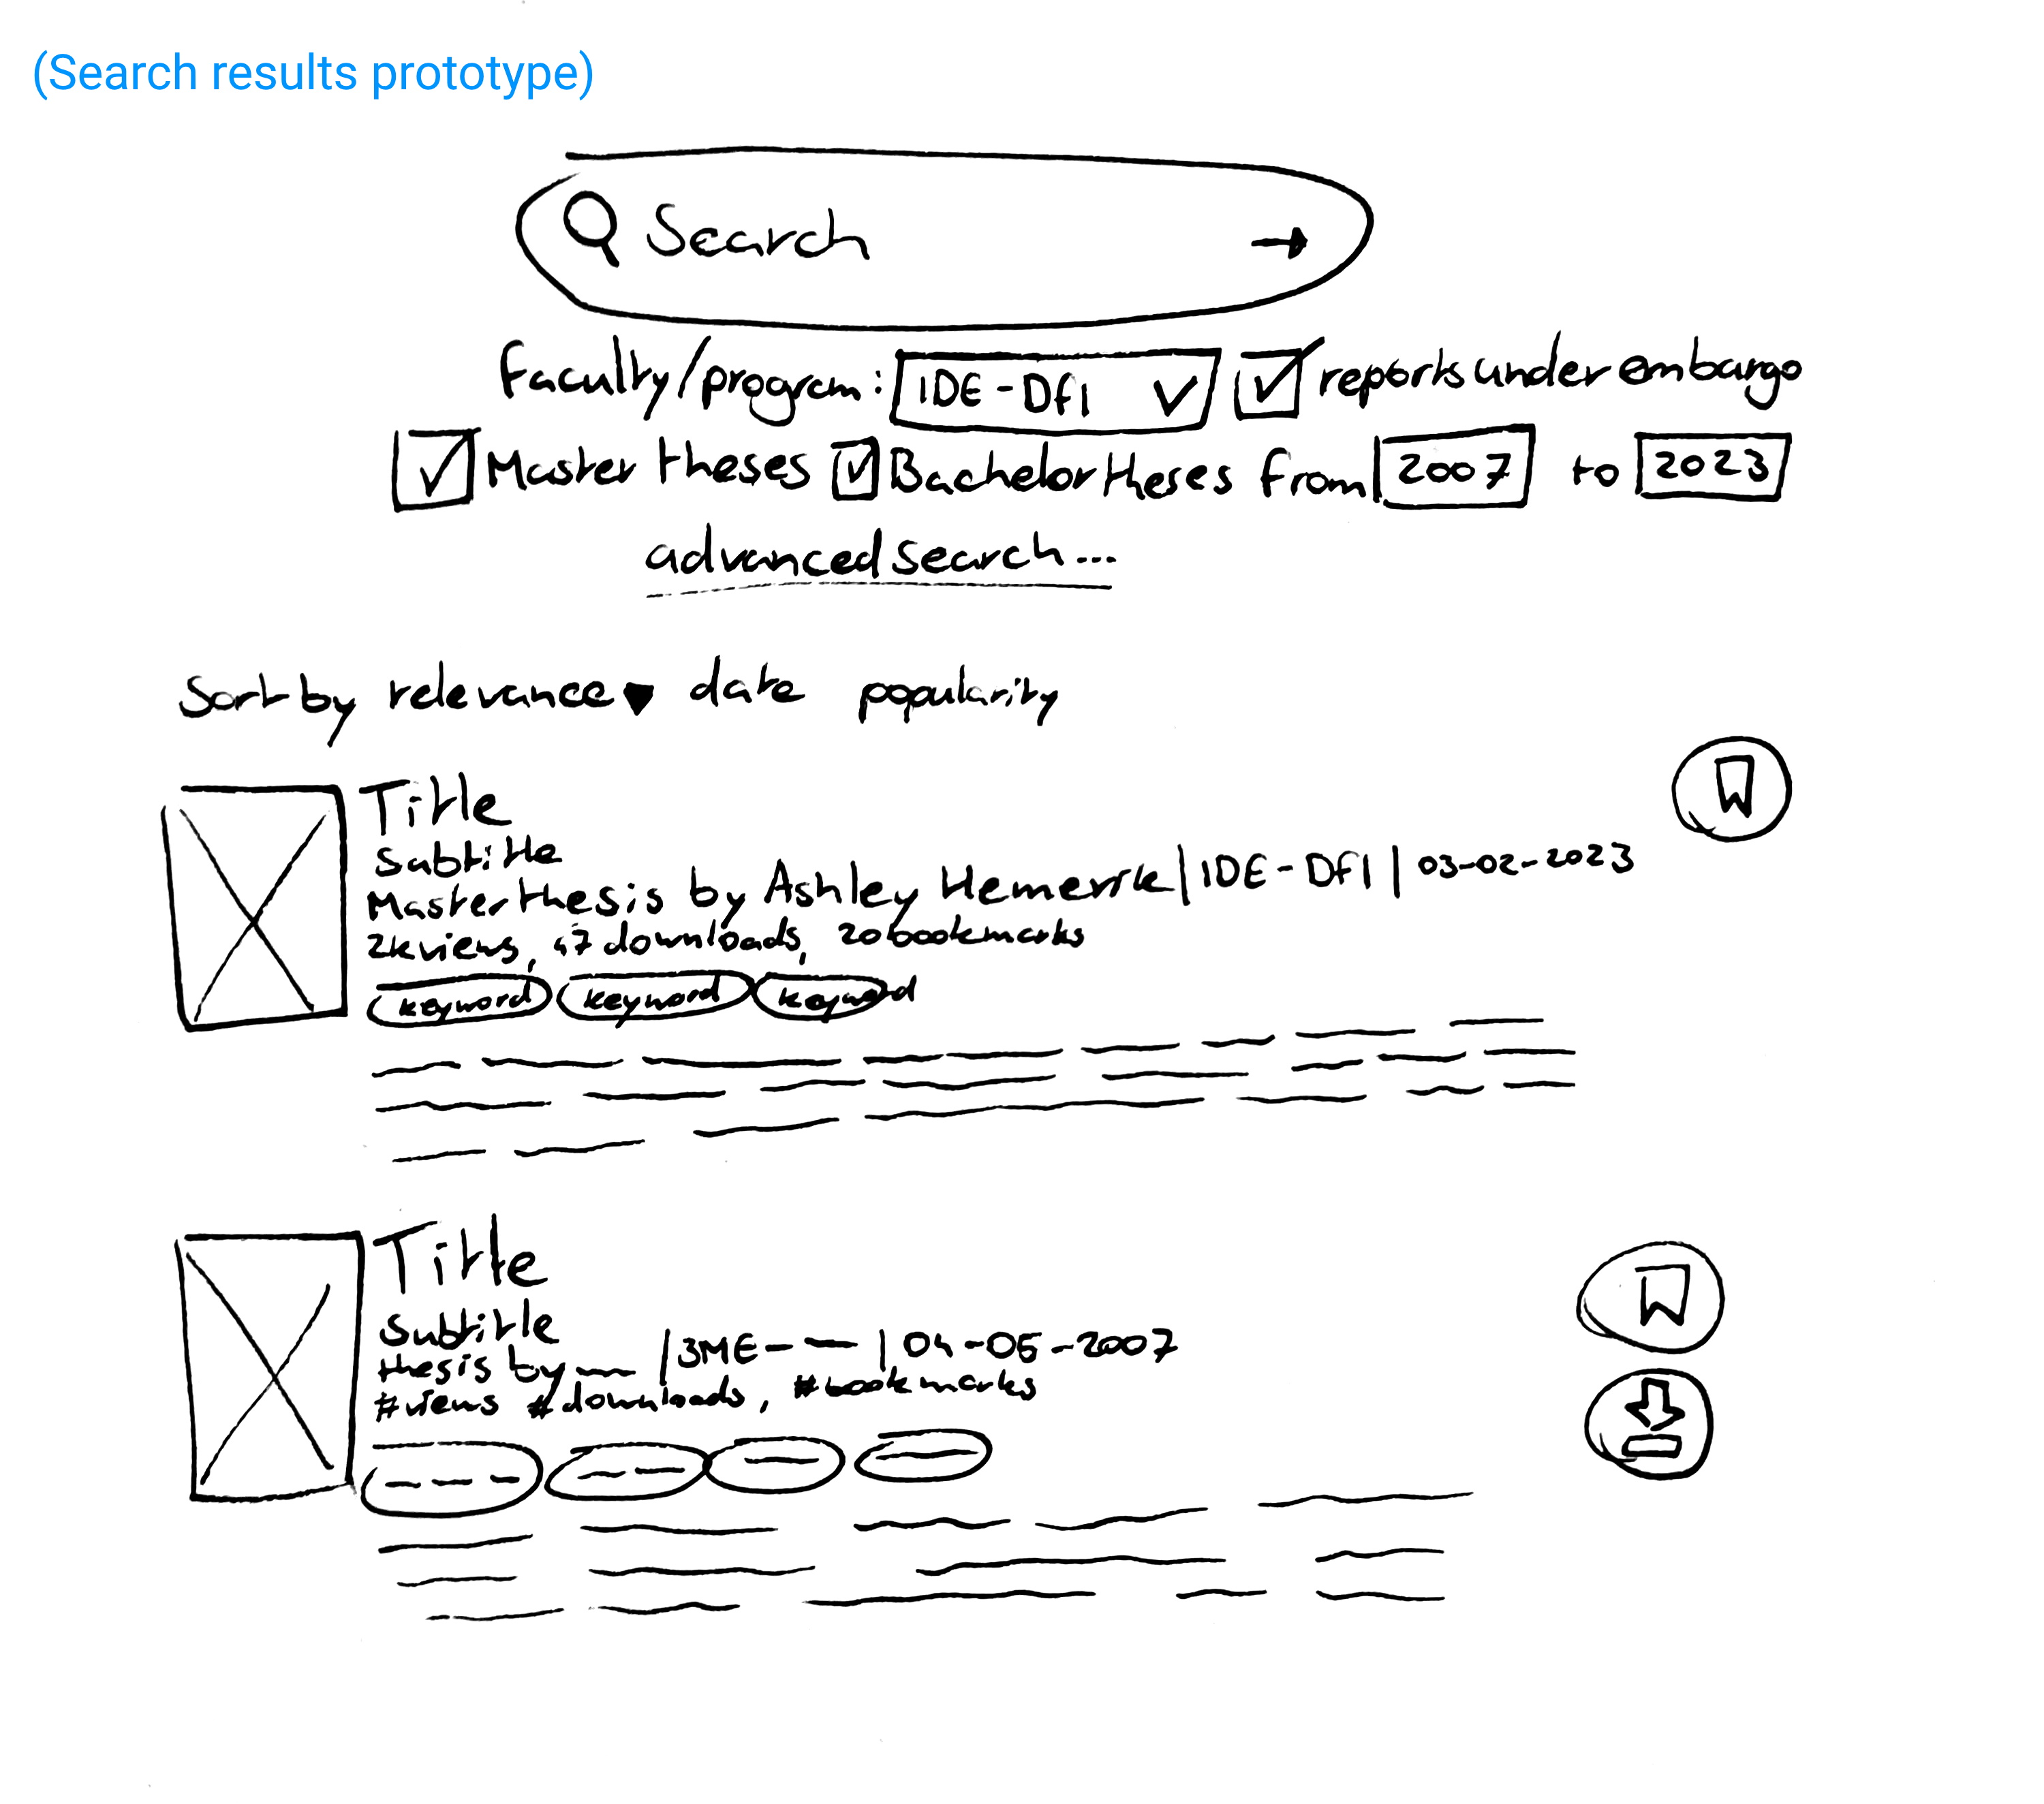 (Search results prototype)
Search →
Faculty/program: IDE-DfI reports under embargo
Master theses Bachelor theses from 2007 to 2023
advanced search...
Sort by relevance▼ date popularity
Title
Subtitle
Master thesis by Ashley Hemerik | IDE-DfI | 03-02-2023
2k views, 47 downloads, 20 bookmarks
keyword keyword keyword
Title
Subtitle
thesis by __ | 3ME-— | 04-05-2007
#views #downloads, #bookmarks